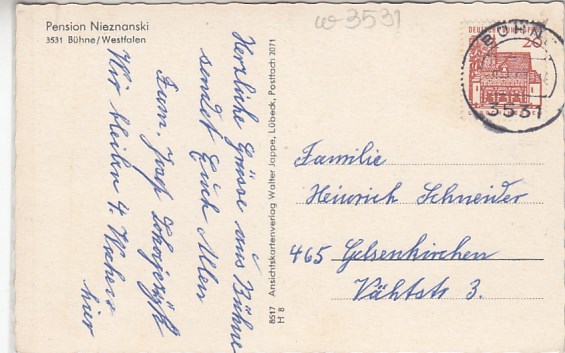 Pension Nieznanski
3531 Bühne/Westfalen
w-3531
Herzliche Grüsse aus Bühne
sendet Euch Allen
Fam. Josef
Wir bleiben 4. Wochen
hier
8517 Ansichtskartenverlag Walter Jappe, Lübeck, Postfach 2071
H 8
DEUTSCHE BUNDESPOST
20
BÜHNE
3531
Familie
Heinrich Schneider
465 Gelsenkirchen
Vähtstr 3.